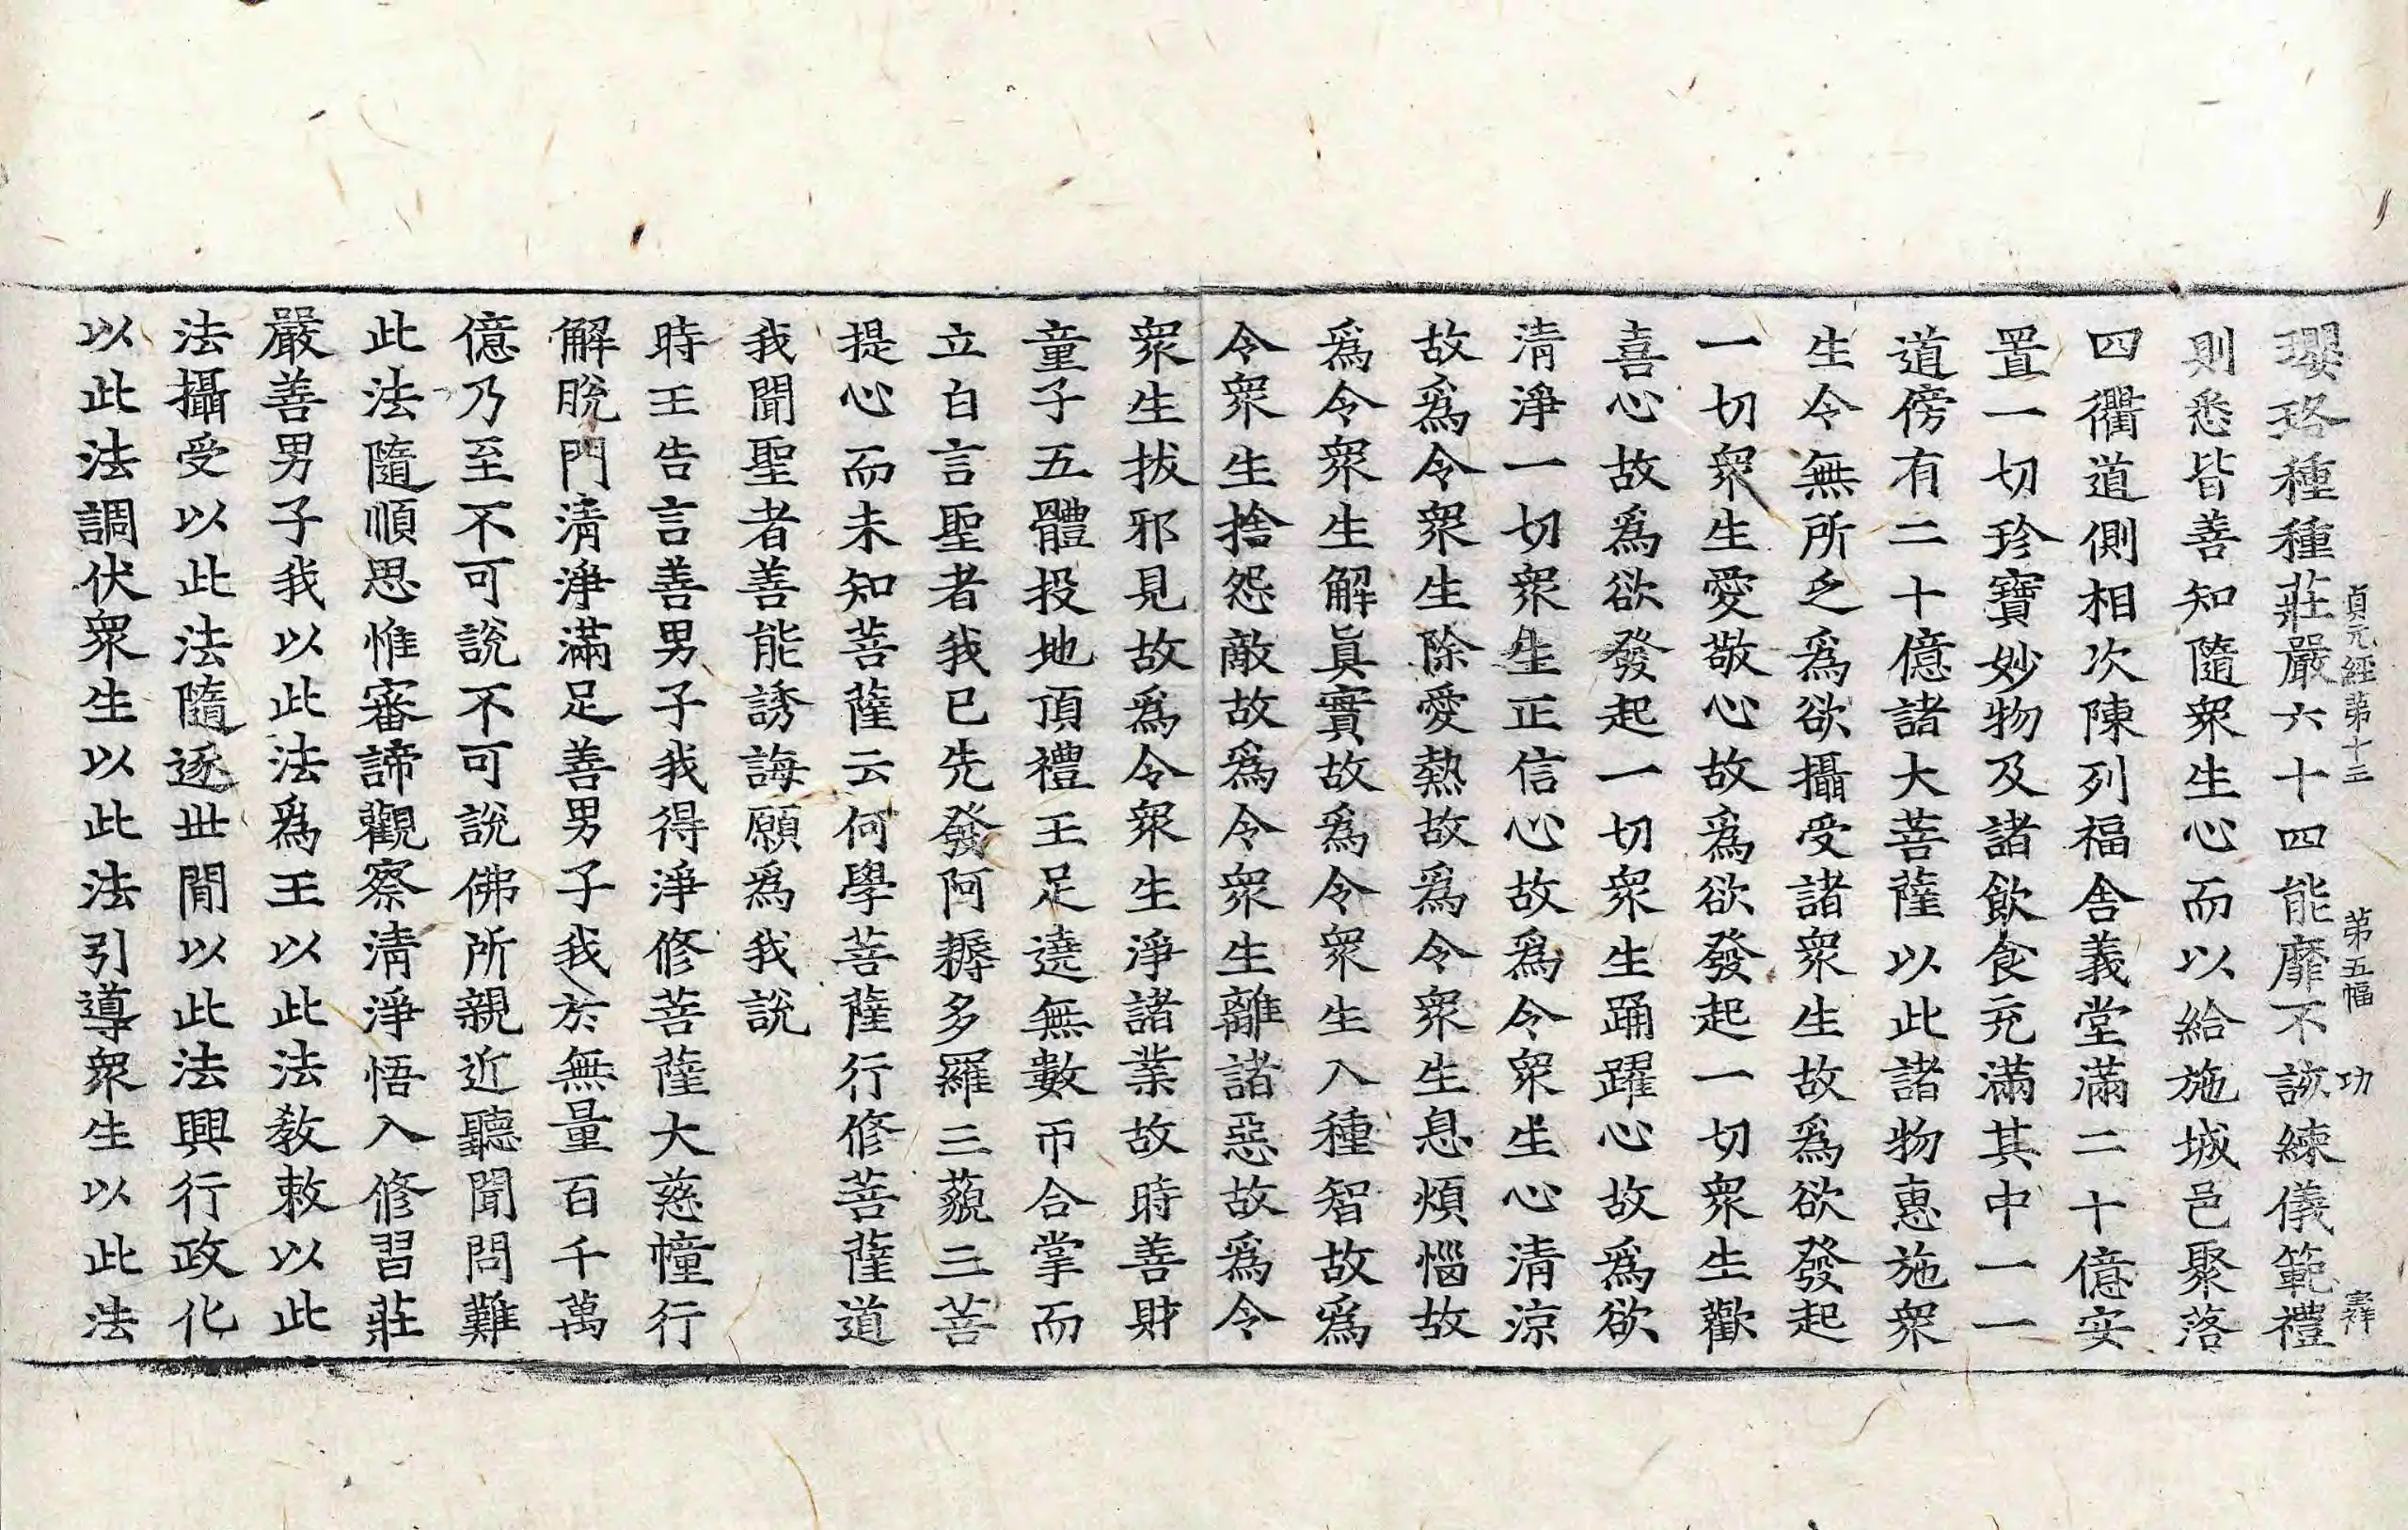 貞元經第十三　第五幅　功
瓔珞種種莊嚴六十四能靡不該練儀範禮
則悉皆善知隨衆生心而以給施城邑聚落
四衢道側相次陳列福舍義堂滿二十億安
置一切珍寶妙物及諸飮食充滿其中一一
道傍有二十億諸大菩薩以此諸物惠施衆
生令無所乏爲欲攝受諸衆生故爲欲發起
一切衆生愛敬心故爲欲發起一切衆生歡
喜心故爲欲發起一切衆生踊躍心故爲欲
清淨一切衆生正信心故爲令衆生心清涼
故爲令衆生除愛熱故爲令衆生息煩惱故
爲令衆生解眞實故爲令衆生入種智故爲
令衆生捨怨敵故爲令衆生離諸惡故爲令
衆生拔邪見故爲令衆生淨諸業故時善財
童子五體投地頂禮王足遶無數帀合掌而
立白言聖者我已先發阿耨多羅三藐三菩
提心而未知菩薩云何學菩薩行修菩薩道
我聞聖者善能誘誨願爲我說
時王告言善男子我得淨修菩薩大慈幢行
解脫門清淨滿足善男子我於無量百千萬
億乃至不可說不可說佛所親近聽聞問難
此法隨順思惟審諦觀察清淨悟入修習莊
嚴善男子我以此法爲王以此法教敕以此
法攝受以此法隨逐世閒以此法興行政化
以此法調伏衆生以此法引導衆生以此法